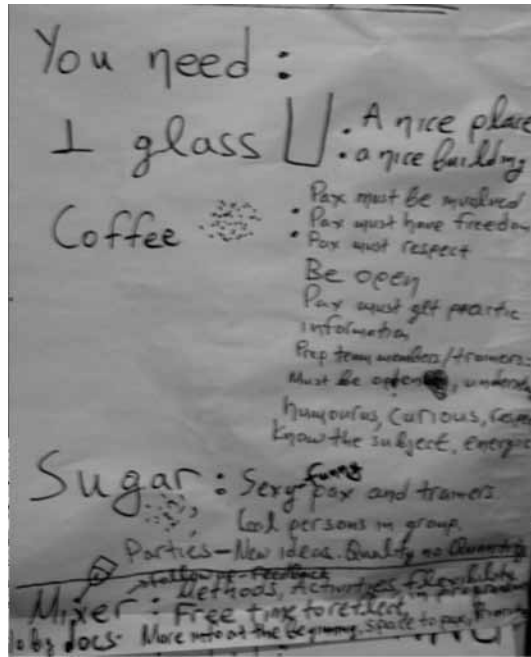 You need :
1 glass . A nice place
. a nice building
Pax must be involved
Coffee . Pax must have freedom
. Pax must respect
Be open
Pax must get practic
information
Prep team members/trainers
Must be
humourus, curious,
Know the subject, energ
Sugar : Sexy funny pax and trainers
Cool persons in group,
Parties - New ideas. Quality no Quantity
follow up - Feedback
Mixer : Methods, Activities, flexibility
in program
Free time to reflect,
docs. More info at the beginning, space to pax,